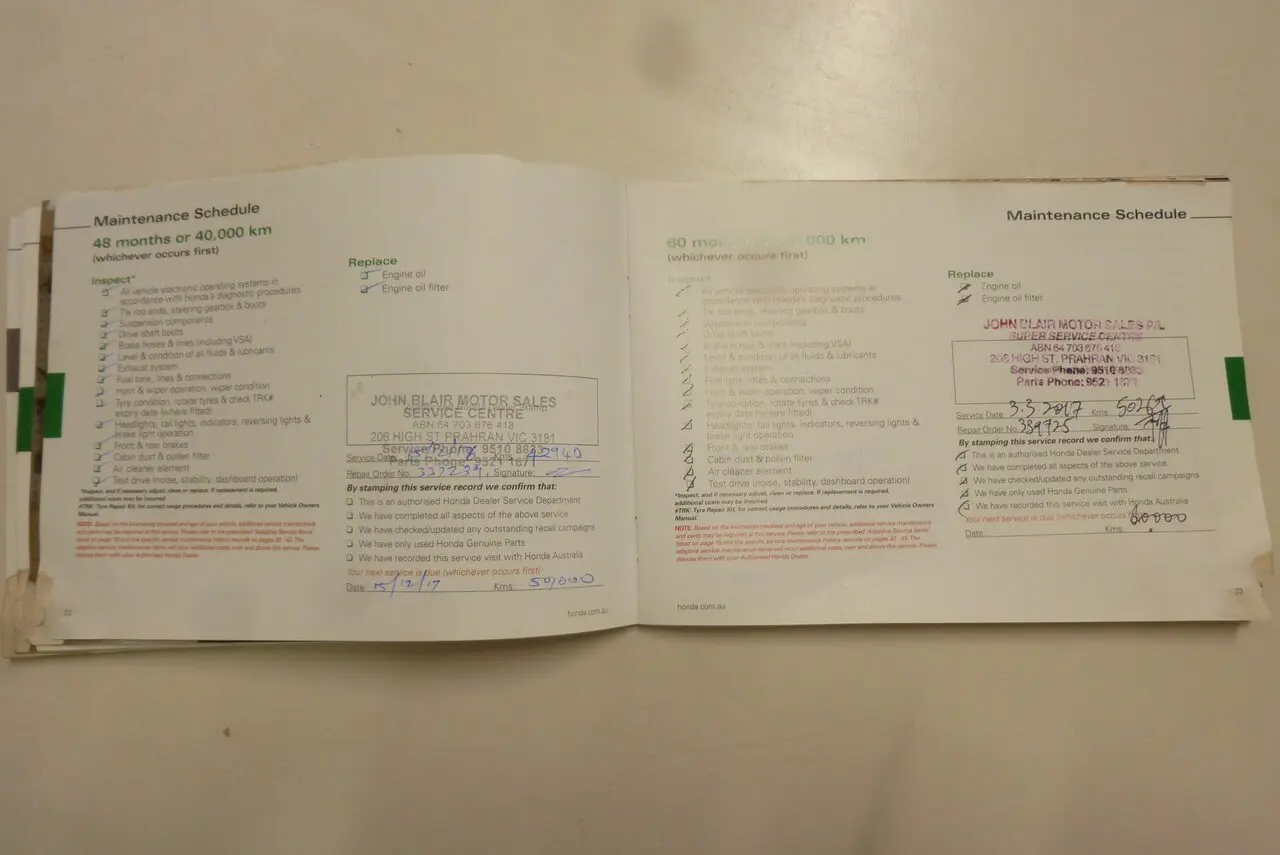 Maintenance Schedule
48 months or 40,000 km
(whichever occurs first)
Inspect*
All vehicle electronic operating systems in
accordance with Honda's diagnostic procedures
Tie rod ends, steering gearbox & boots
Suspension components
Drive shaft boots
Brake hoses & lines (including VSA)
Level & condition of all fluids & lubricants
Exhaust system
Fuel tank, lines & connections
Horn & wiper operation, wiper condition
Tyre condition, rotate tyres & check TRK#
expiry date (where fitted)
Headlights, tail lights, indicators, reversing lights &
brake light operation
Front & rear brakes
Cabin dust & pollen filter
Air cleaner element
Test drive (noise, stability, dashboard operation)
*Inspect, and if necessary adjust, clean or replace. If replacement is required,
additional costs may be incurred.
#TRK: Tyre Repair Kit, for correct usage procedures and details, refer to your Vehicle Owners
Manual.
NOTE: Based on the kilometres travelled and age of your vehicle, additional service maintenance
and parts may be required at this service. Please refer to the prescribed 'Adaptive Service Items'
adaptive service maintenance items will incur additional costs, over and above this service. Please
discuss them with your Authorised Honda Dealer.
22
Replace
Engine oil
Engine oil filter
JOHN BLAIR MOTOR SALES
SERVICE CENTRE
ABN 64 703 676 418
206 HIGH ST PRAHRAN VIC 3181
Service Phone: 9510 8883
Parts Phone: 9521 1871
Service Date Kms 42940
Repair Order No. 337239 Signature:
By stamping this service record we confirm that:
This is an authorised Honda Dealer Service Department
We have completed all aspects of the above service
We have checked/updated any outstanding recall campaigns
We have only used Honda Genuine Parts
We have recorded this service visit with Honda Australia
Your next service is due (whichever occurs first):
Date 15/12/17 Kms: 50,000
honda.com.au
Maintenance Schedule
60 000 km
(whichever occurs first)
Inspect*
All vehicle electronic operating systems in
accordance with Honda's diagnostic procedures
Tie rod ends, steering gearbox & boots
Suspension components
Drive shaft boots
Brake hoses & lines (including VSA)
Level & condition of all fluids & lubricants
Exhaust system
Fuel tank, lines & connections
Horn & wiper operation, wiper condition
Tyre condition, rotate tyres & check TRK#
expiry date (where fitted)
Headlights, tail lights, indicators, reversing lights &
brake light operation
Front & rear brakes
Cabin dust & pollen filter
Air cleaner element
Test drive (noise, stability, dashboard operation)
*Inspect, and if necessary adjust, clean or replace. If replacement is required,
additional costs may be incurred.
#TRK: Tyre Repair Kit, for correct usage procedures and details, refer to your Vehicle Owners
Manual.
NOTE: Based on the kilometres travelled and age of your vehicle, additional service maintenance
and parts may be required at this service. Please refer to the prescribed 'Adaptive Service Items'
adaptive service maintenance items will incur additional costs, over and above this service. Please
discuss them with your Authorised Honda Dealer.
honda.com.au
Replace
Engine oil
Engine oil filter
JOHN BLAIR MOTOR SALES P/L
SUPER SERVICE CENTRE
ABN 64 703 676 418
206 HIGH ST. PRAHRAN VIC 3181
Service Phone: 9510 8883
Parts Phone: 9521 1871
Service Date 3.3.2017 Kms
Repair Order No. 339725 Signature:
By stamping this service record we confirm that:
This is an authorised Honda Dealer Service Department
We have completed all aspects of the above service
We have checked/updated any outstanding recall campaigns
We have only used Honda Genuine Parts
We have recorded this service visit with Honda Australia
Your next service is due (whichever occurs
Date Kms: 60000
23